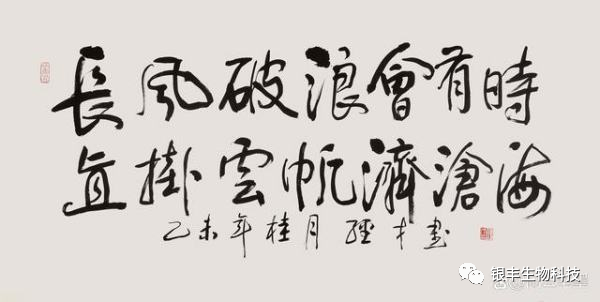 長風破浪會有時
直掛雲帆濟滄海
乙未年桂月 經才書
银丰生物科技